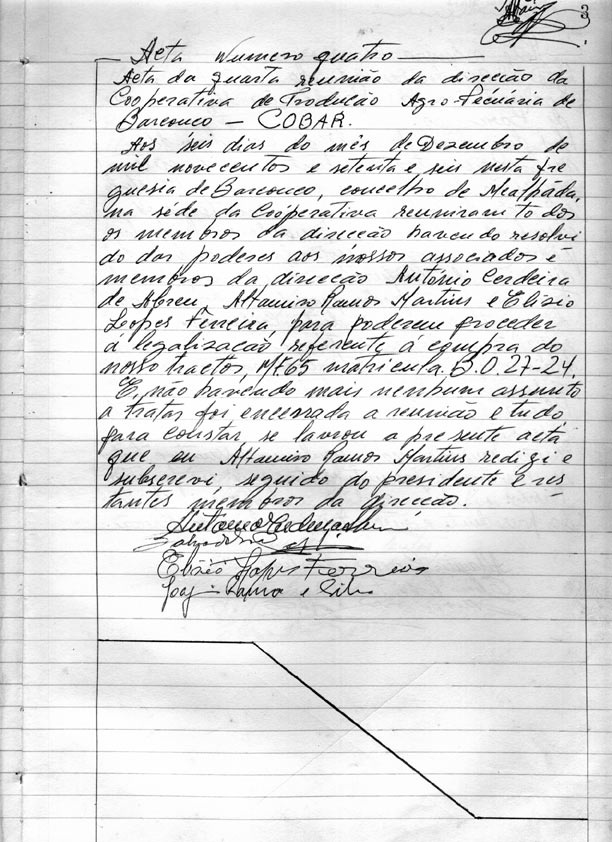 3
Acta Numero quatro
Acta da quarta reunião da direcção da
Cooperativa de Produção Agro-Pecuária de
Barcouco — COBAR.
Aos seis dias do mês de Dezembro de
mil novecentos e setenta e seis nesta fre
guesia de Barcouco, concelho de Mealhada,
na séde da Coóperativa reuniram todos
os membros da direcção havendo resolvi
do dar poderes aos nossos associados e
membros da direcção António Cerdeira
de Abreu, Altamiro Ramos Martins e Elizio
Lopes Ferreira, para poderem proceder
á legalização referente á compra do
nosso tractor, MF65 matricula B.O.27-24.
E, não havendo mais nenhum assunto
a tratar foi encerrada a reunião e tudo
para constar se lavrou a presente acta
que eu Altamiro Ramos Martins redigi e
subscrevi, seguido do presidente e res
tantes membros da direcção.
António
Elizio Lopes Ferreira
e Silva